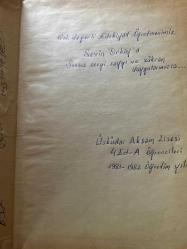 Çok değerli Edebiyat Öğretmenimiz
Sevin
Sonsuz sevgi, saygı ve şükran
duygularımızla...
Üsküdar Akşam Lisesi
4 Ed-A Öğrencileri
1981-1982 Öğretim yılı